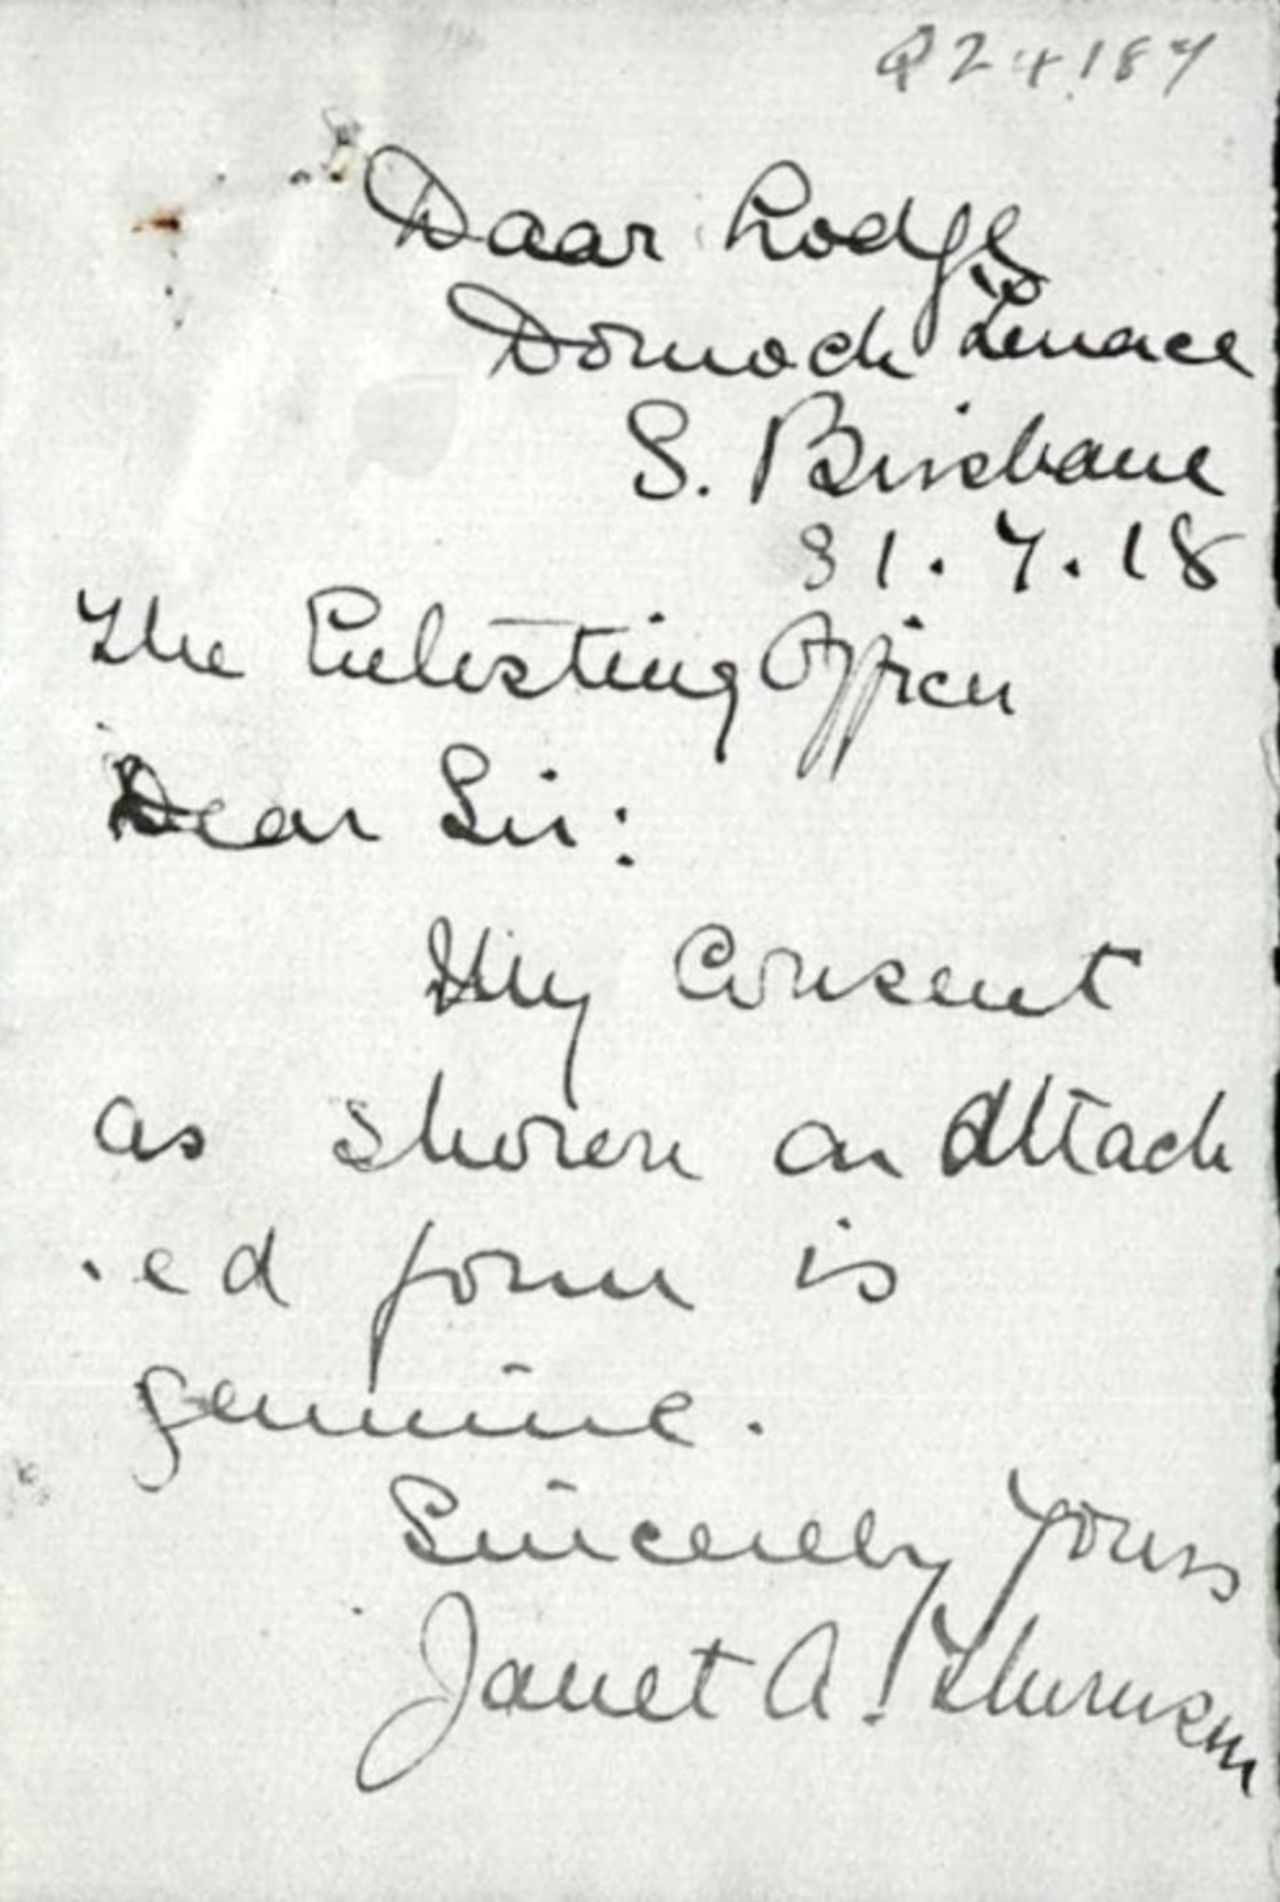 Q24187
Daar Lodge
Dornoch Terrace
S. Brisbane
31.7.18
The Enlisting Officer
Dear Sir:
My Consent
as shown on attach
.ed form is
genuine.
Sincerely Yours
Janet A.